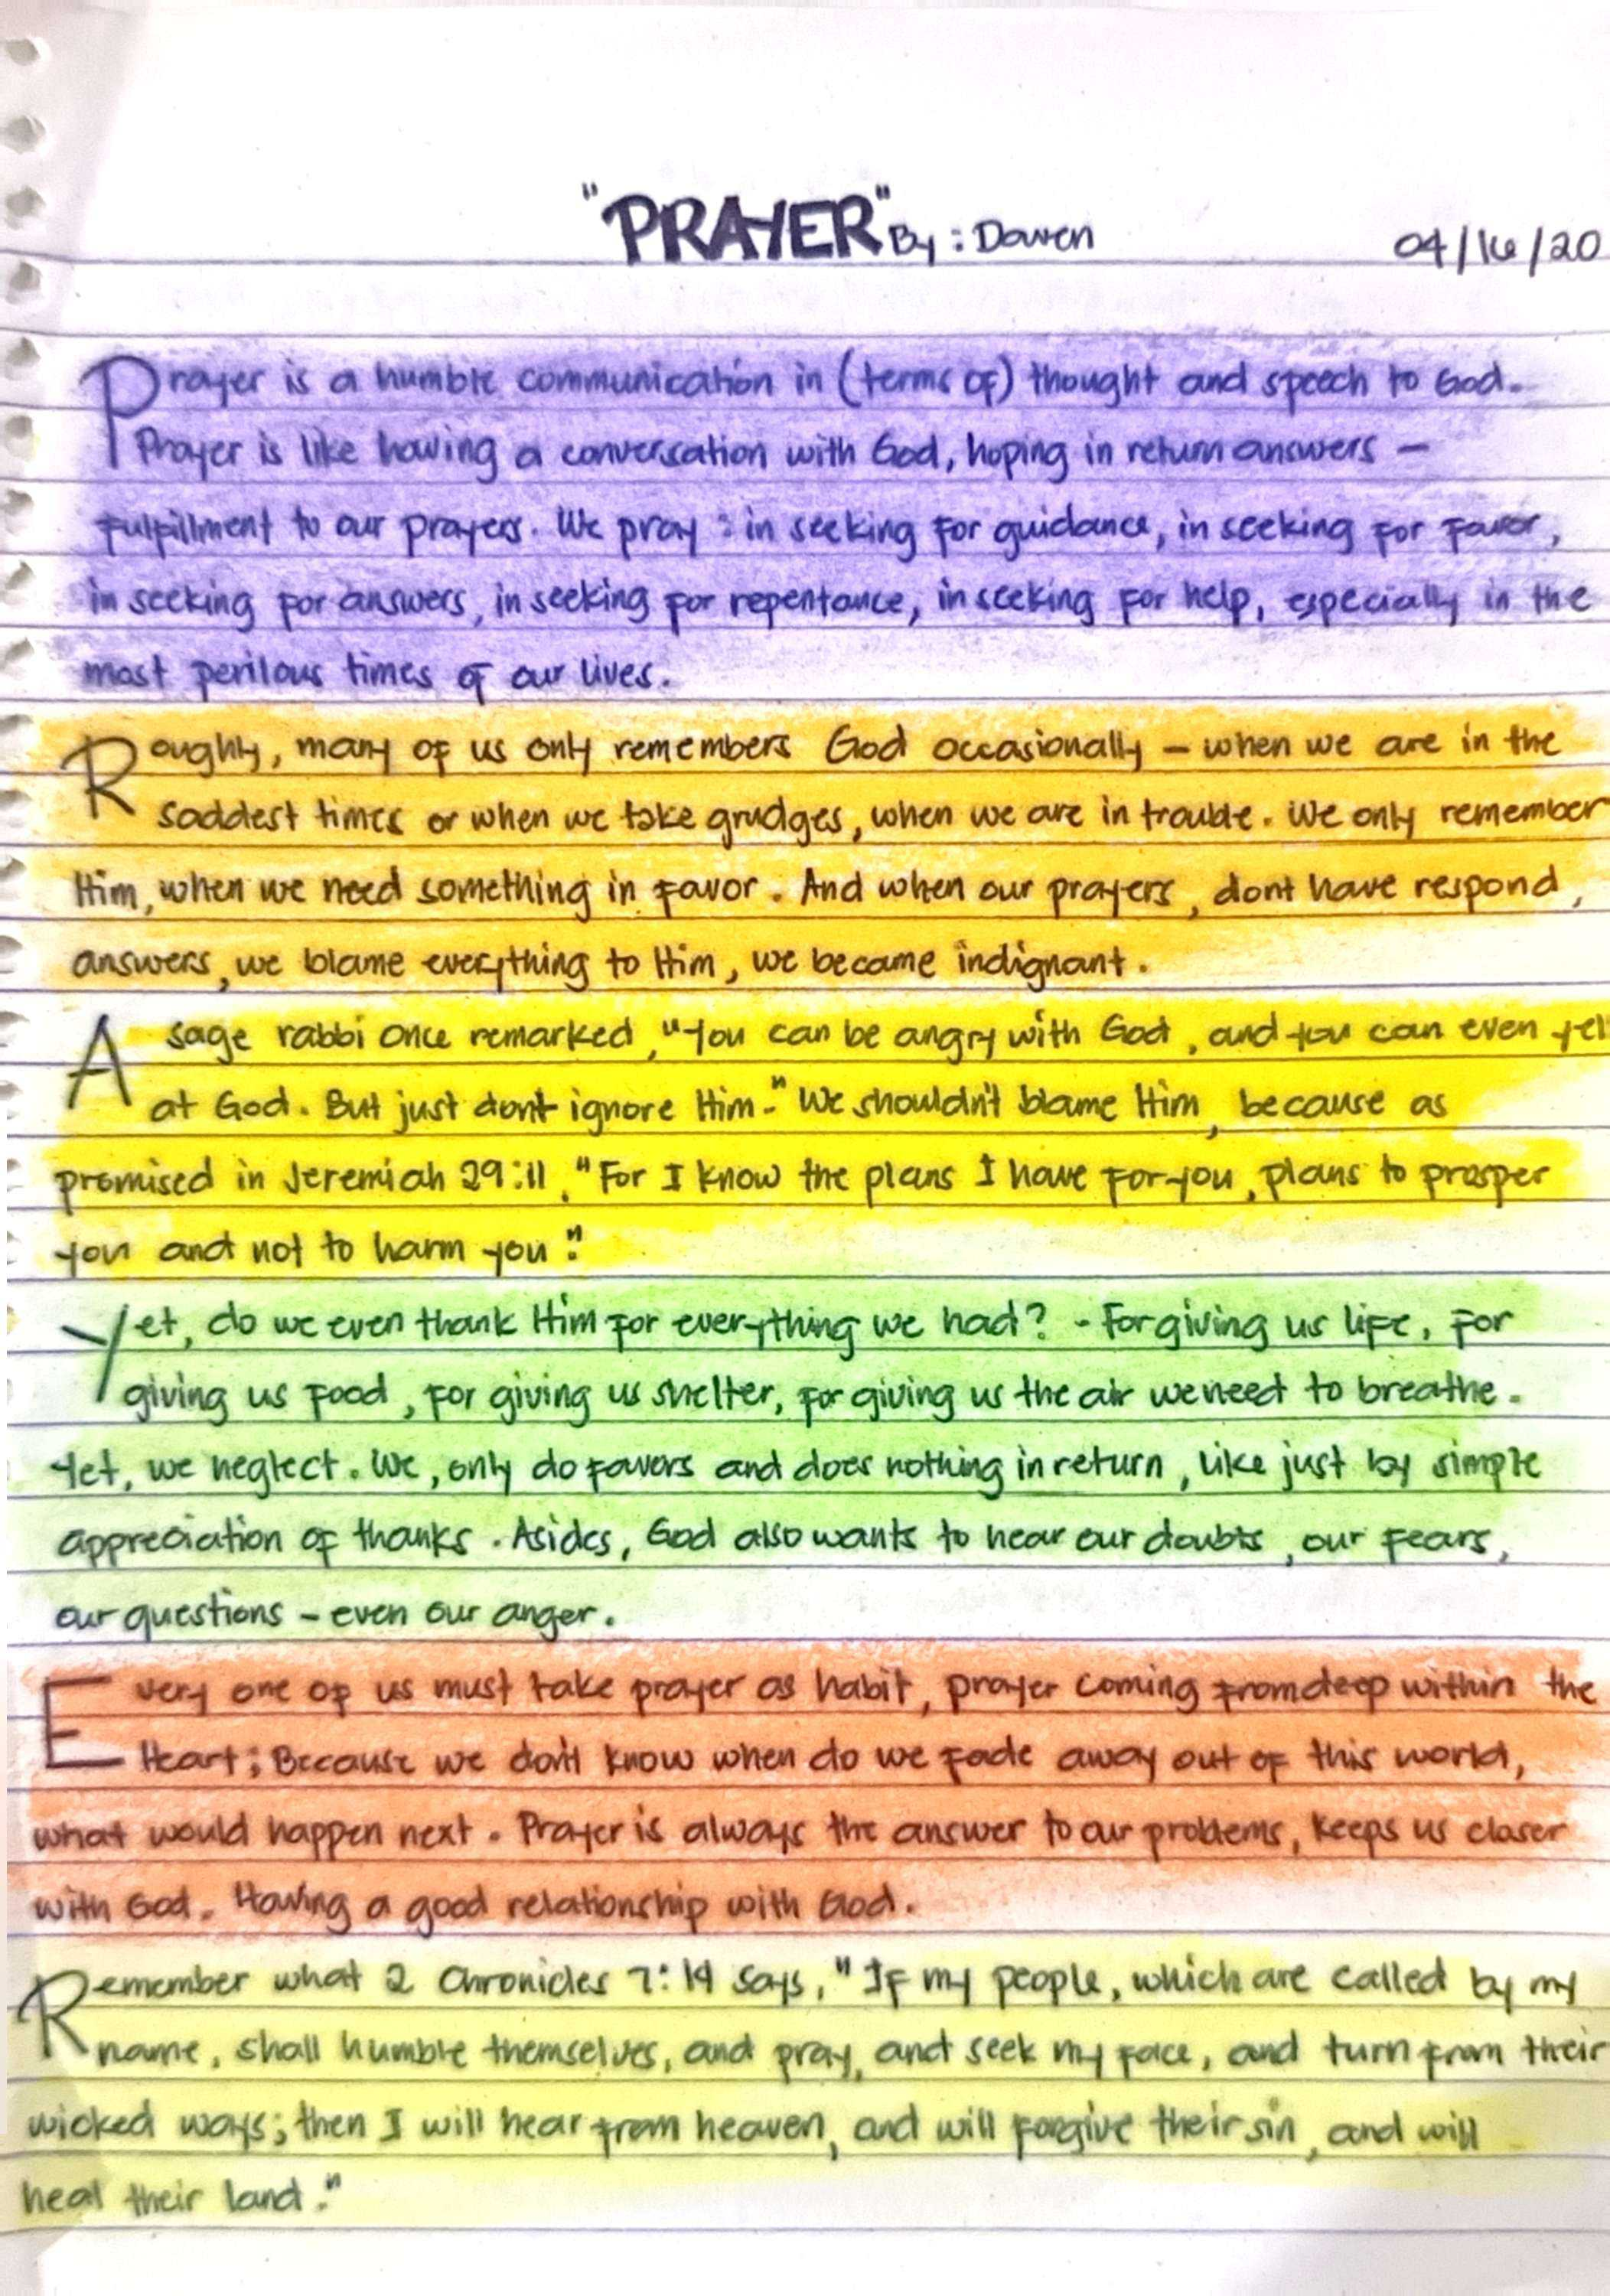 "PRAYER" By : Dawen 04/16/20
Prayer is a humble communication in (terms of) thought and speech to God.
Prayer is like having a conversation with God, hoping in return answers –
fulfillment to our prayers. We pray : in seeking for guidance, in seeking for favor,
in seeking for answers, in seeking for repentance, in seeking for help, especially in the
most perilous times of our lives.
Roughly, many of us only remembers God occasionally – when we are in the
saddest times or when we take grudges, when we are in trouble. We only remember
Him, when we need something in favor. And when our prayers, dont have respond,
answers, we blame everything to Him, we became indignant.
A sage rabbi once remarked, "You can be angry with God, and you can even yell
at God. But just dont ignore Him." We shouldn't blame Him, because as
promised in Jeremiah 29:11, "For I know the plans I have for you, plans to prosper
you and not to harm you."
Yet, do we even thank Him for everything we had? - For giving us life, for
giving us food, for giving us shelter, for giving us the air we need to breathe.
Yet, we neglect. We, only do favors and does nothing in return, like just by simple
appreciation of thanks. Asides, God also wants to hear our doubts, our fears,
our questions – even our anger.
Every one of us must take prayer as habit, prayer coming from deep within the
Heart; Because we don't know when do we fade away out of this world,
what would happen next. Prayer is always the answer to our problems, keeps us closer
with God. Having a good relationship with God.
Remember what 2 Chronicles 7:14 says, "If my people, which are called by my
name, shall humble themselves, and pray, and seek my face, and turn from their
wicked ways; then I will hear from heaven, and will forgive their sin, and will
heal their land."